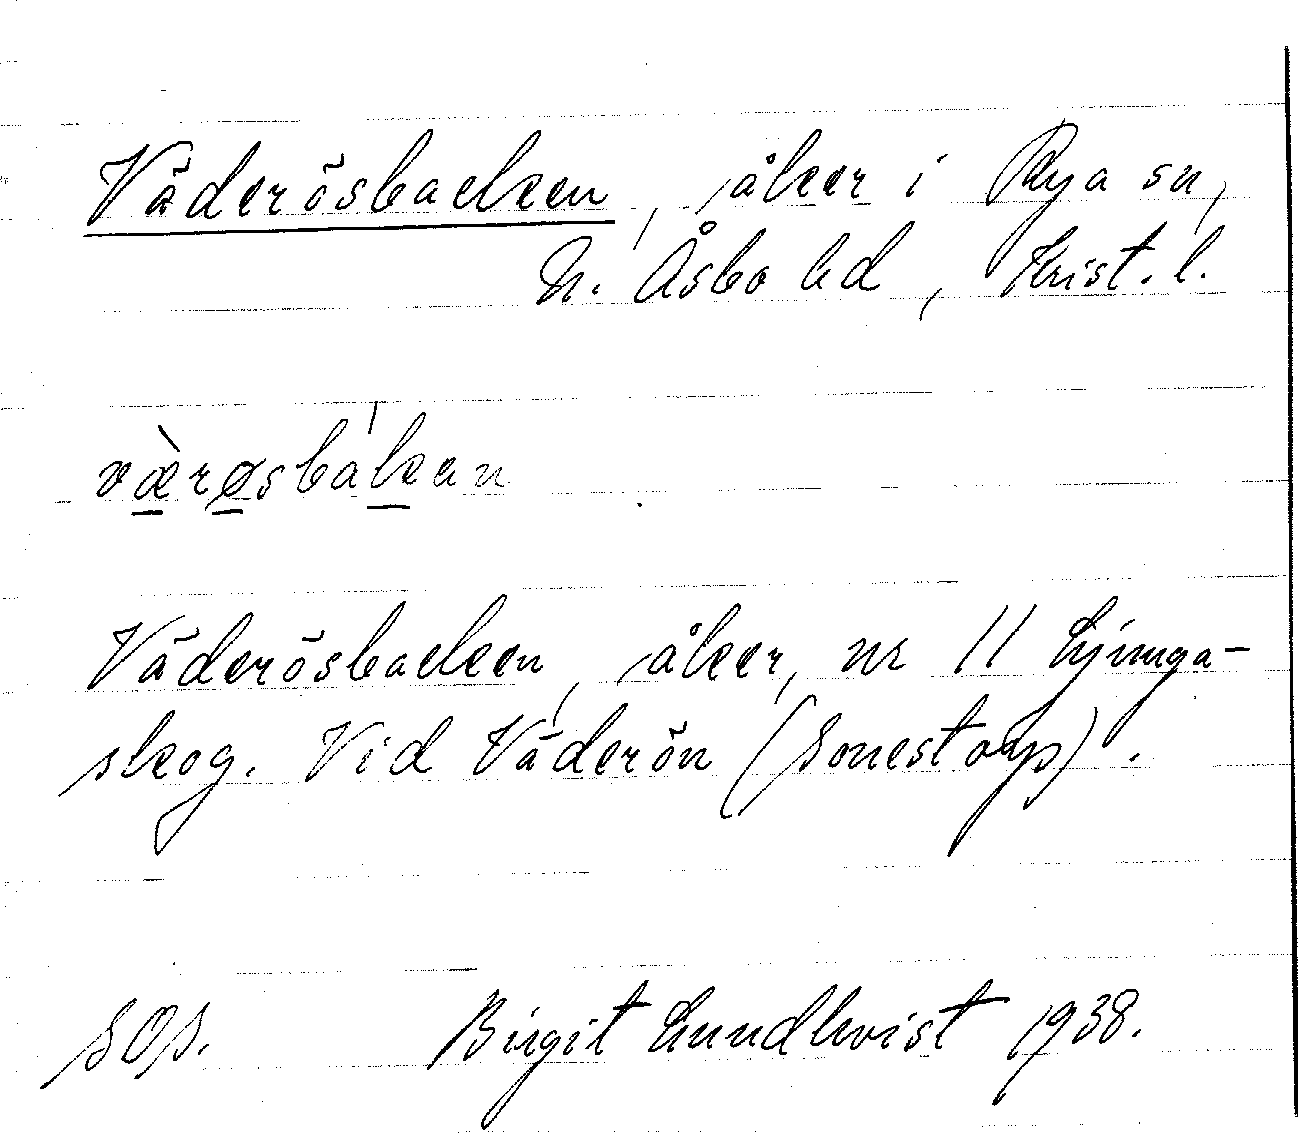 Väderösbacken, åker i Rya sn,
N. Åsbo hd, Krist. l.
væ̀røsbákan
Väderösbacken, åker, nr 11 Ljunga-
skog. Vid Väderön (Sonestorp).
SOS. Birgit Lundkvist 1938.